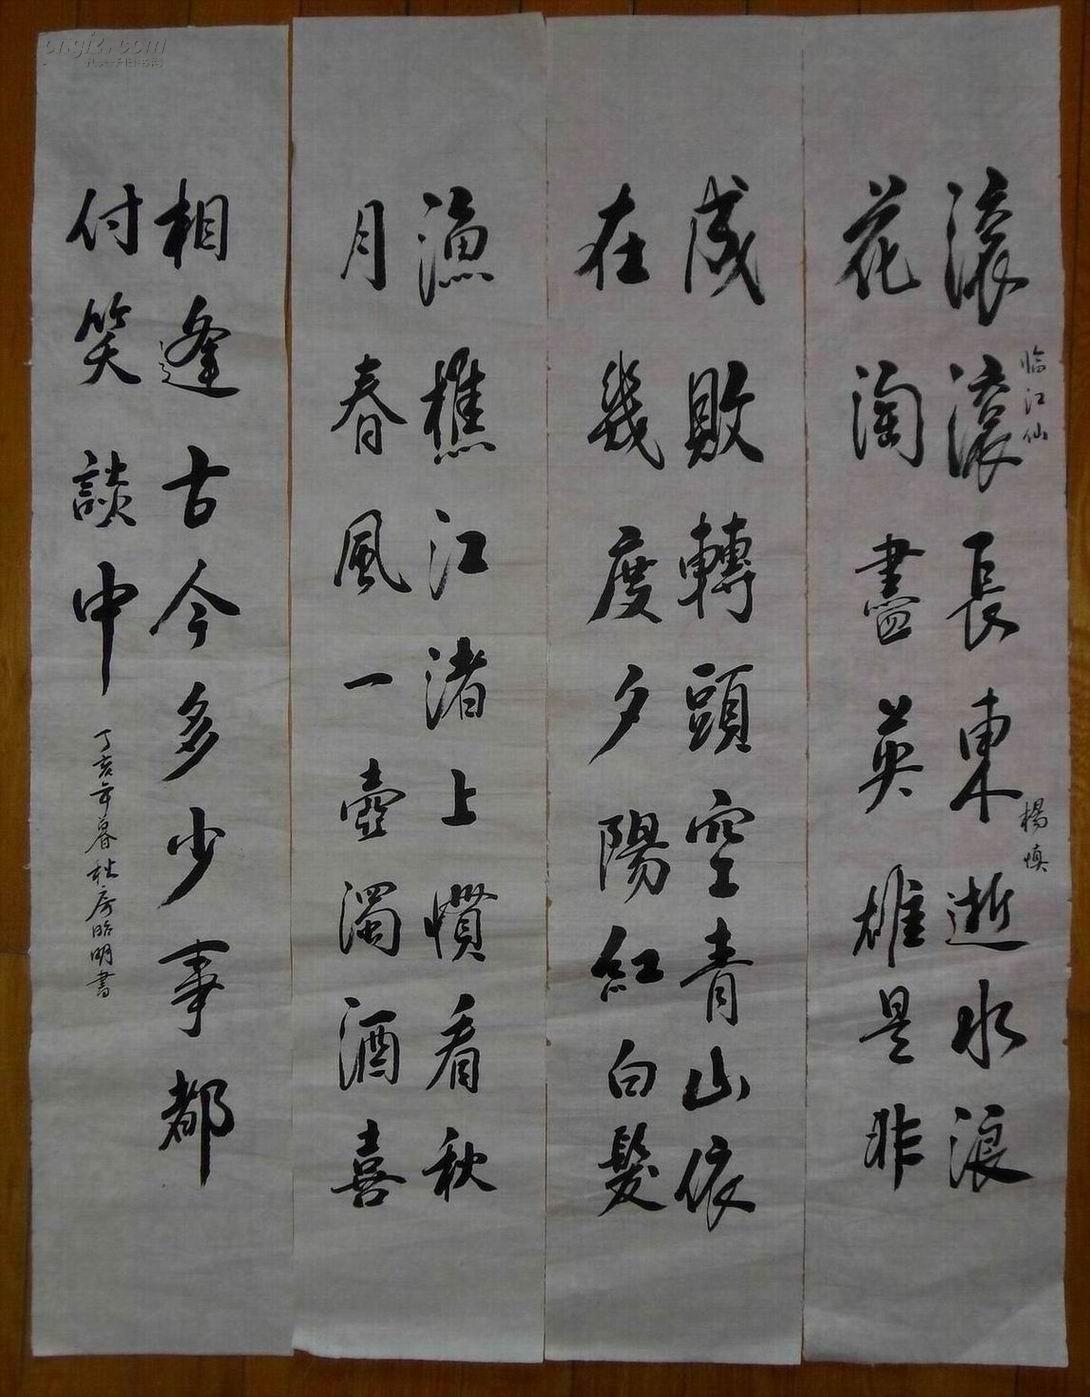 临江仙 楊慎
滚滚長東逝水浪
花淘盡英雄是非
成敗轉頭空青山依
在幾度夕陽紅白髮
漁樵江渚上慣看秋
月春風一壺濁酒喜
相逢古今多少事都
付笑談中
丁亥年暮秋房昭明書